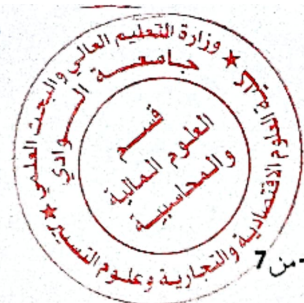 وزارة التعليم العالي والبحث العلمي
جامعة الوادي
العلوم الاقتصادية والتجارية وعلوم التسيير
قسم
العلوم المالية
والمحاسبية
من 7